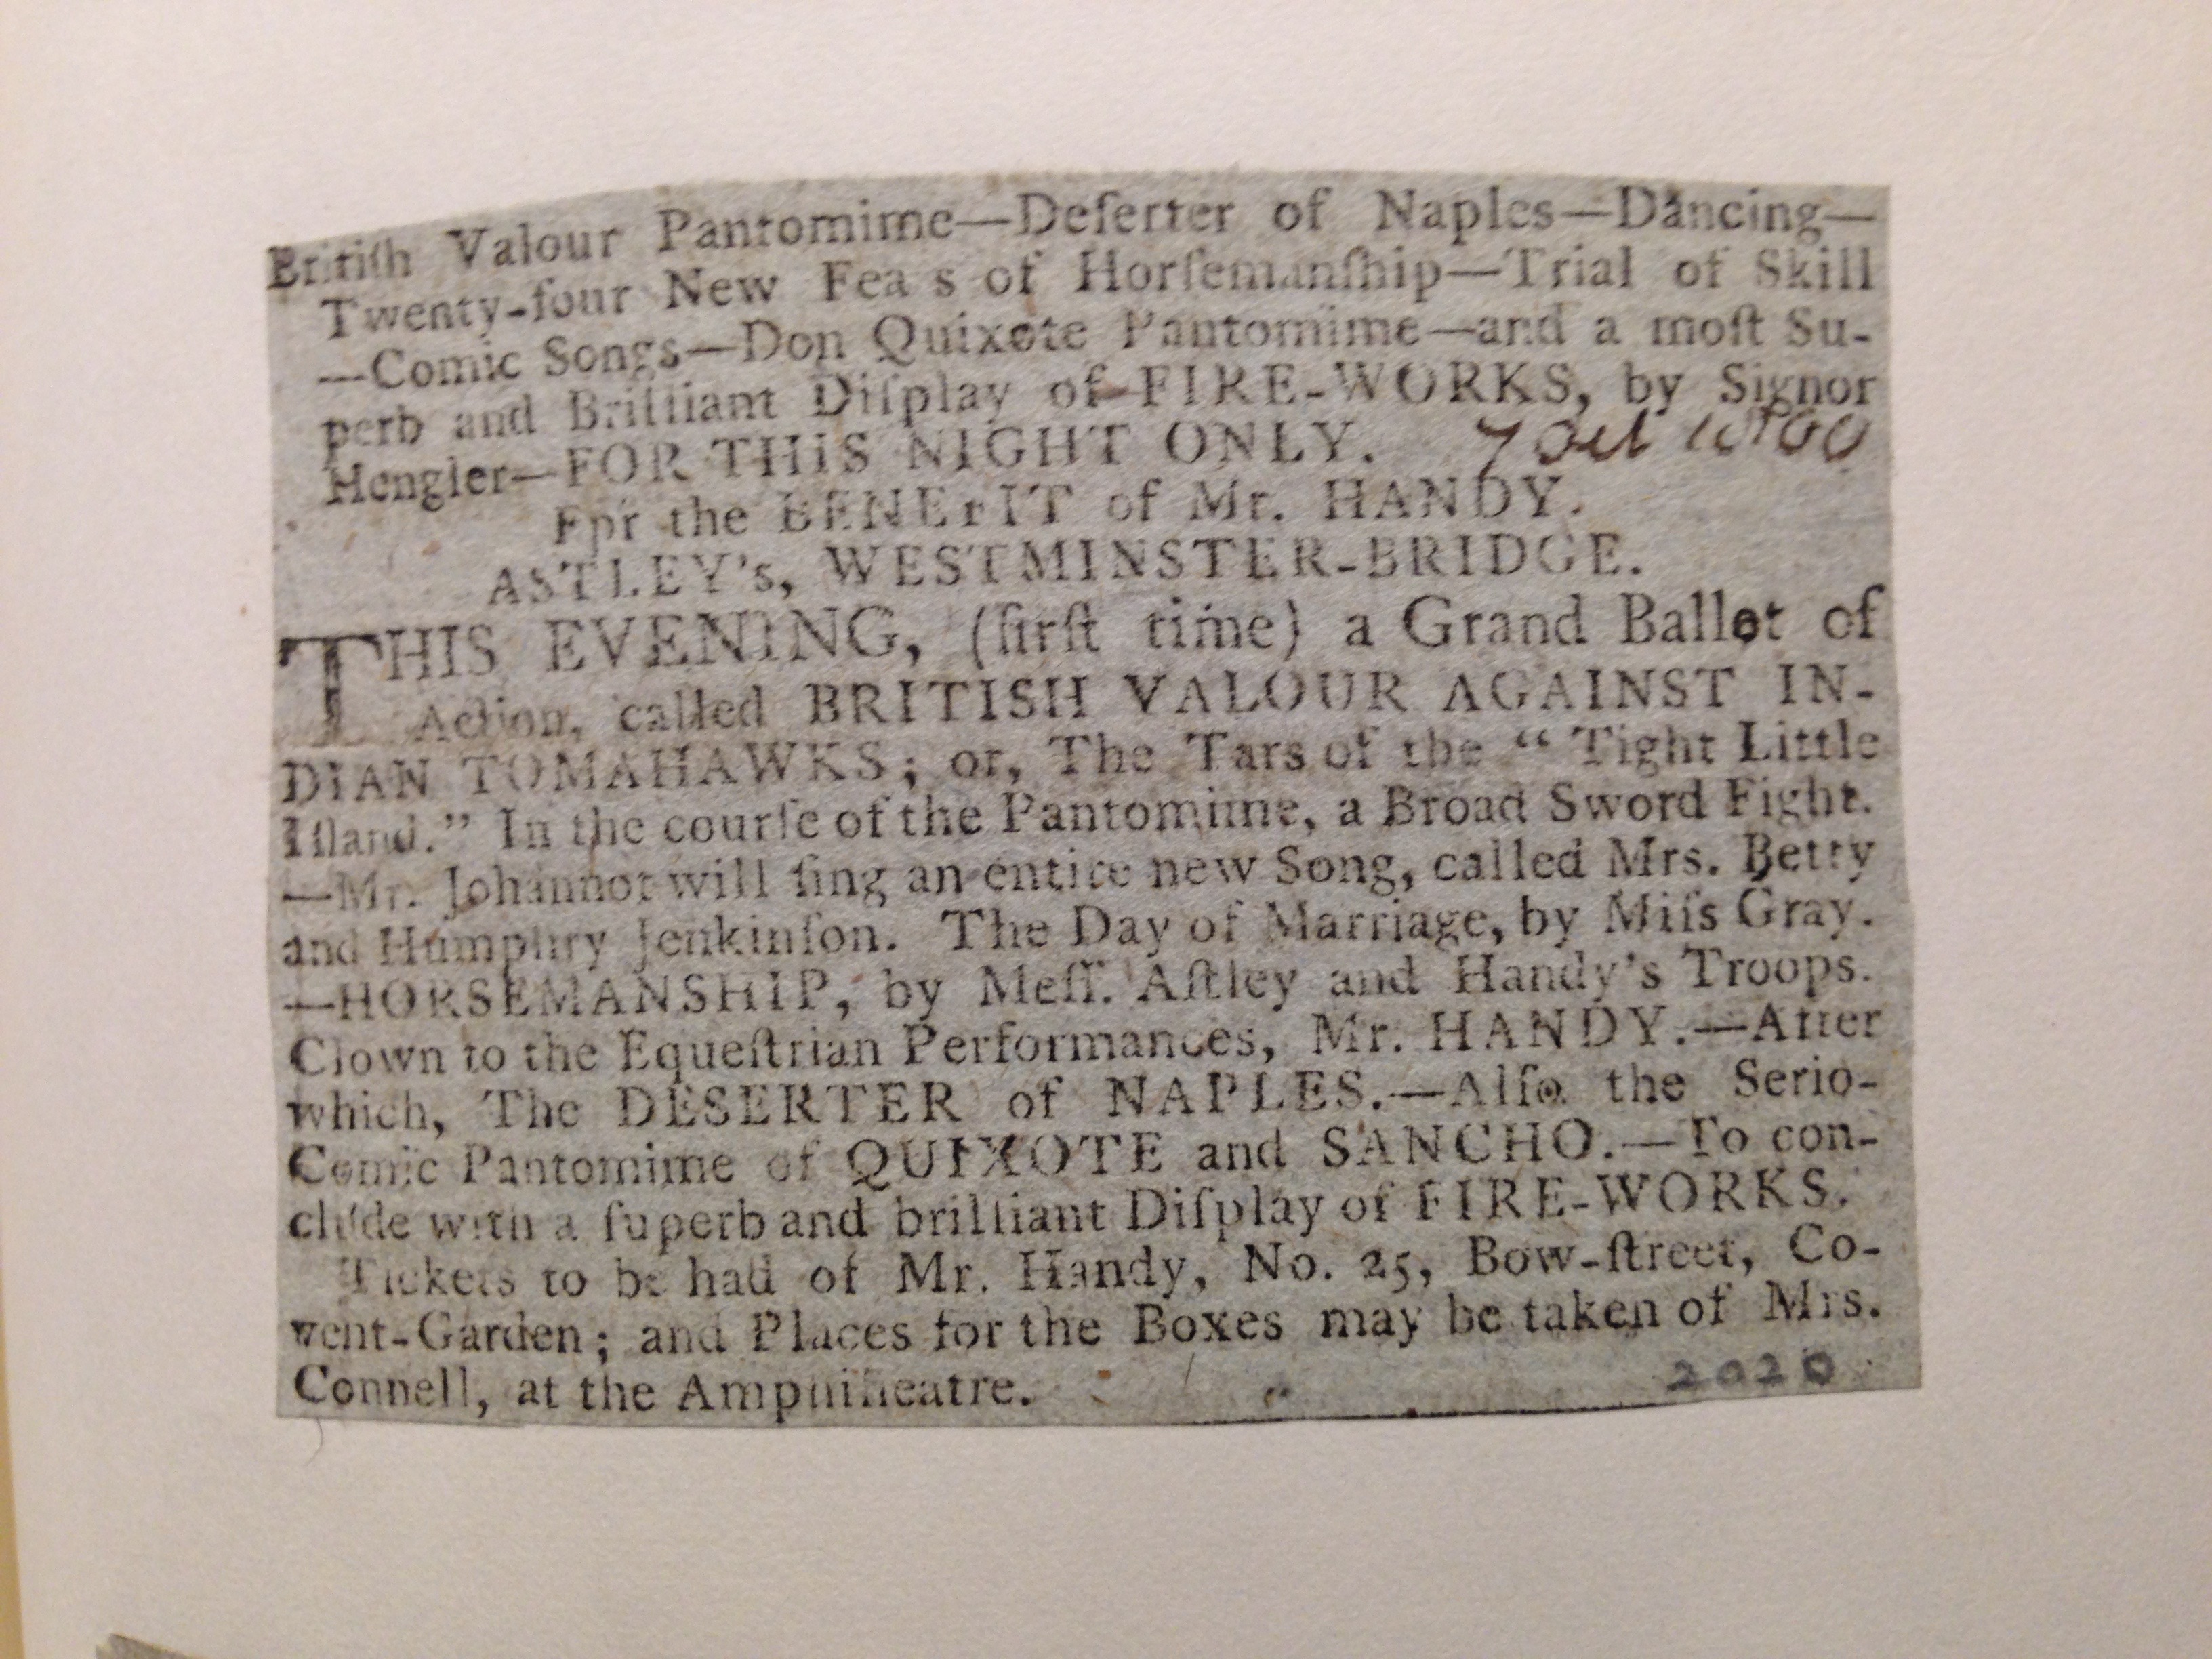 Britiſh Valour Pantomime—Deſerter of Naples—Dancing—
Twenty-four New Fea s of Horſemanſhip—Trial of Skill
—Comic Songs—Don Quixote Pantomime—and a moſt Su-
perb and Brilliant Diſplay of FIRE-WORKS, by Signor
Hengler—FOR THIS NIGHT ONLY. 7 Oct
For the BENEFIT of Mr. HANDY.
ASTLEY's, WESTMINSTER-BRIDGE.
THIS EVENING, (firſt time) a Grand Ballet of
Action, called BRITISH VALOUR AGAINST IN-
DIAN TOMAHAWKS; or, The Tars of the “ Tight Little
Iſland.” In the courſe of the Pantomime, a Broad Sword Fight.
—Mr. Johannot will ſing an entire new Song, called Mrs. Betty
and Humphry Jenkinſon. The Day of Marriage, by Miſs Gray.
—HORSEMANSHIP, by Meſſ. Aſtley and Handy's Troops.
Clown to the Equeſtrian Performances, Mr. HANDY.—After
which, The DESERTER of NAPLES.—Alſo the Serio-
Comic Pantomime of QUIXOTE and SANCHO.—To con-
clude with a ſuperb and brilliant Diſplay of FIRE-WORKS.
Tickets to be had of Mr. Handy, No. 25, Bow-ſtreet, Co-
vent-Garden; and Places for the Boxes may be taken of Mrs.
Connell, at the Amphitheatre. 2020